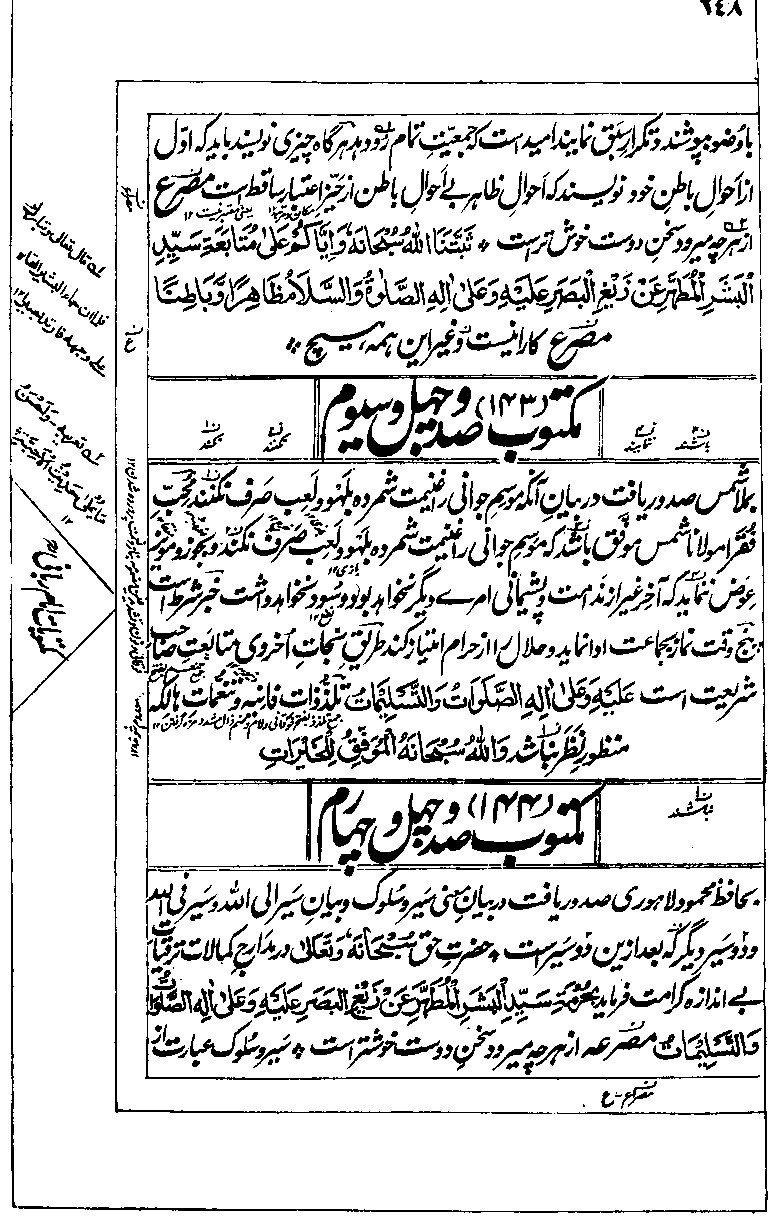 ۲٤۸
باوضو بپوشند و تکرار سبق نمایند امید است که جمعیت تمام رو دهد هر گاه چیزی نویسند باید که اوّل
از احوالِ باطنِ خود نویسند که احوالِ ظاهر بے احوالِ باطن از حَیِّزِ اعتبار ساقط است مصرع
از هر چه میرود سخنِ دوست خوش ترست * ثَبَّتَنَا اللهُ سُبْحَانَهُ وَاِیَّاکُمْ عَلیٰ مُتَابَعَةِ سَیِّدِ
الْبَشَرِ الْمُطَهَّرِ عَنْ زَیْغِ الْبَصَرِ عَلَیْهِ وَعَلیٰ اٰلِهِ الصَّلوٰةُ وَالسَّلَامُ ظَاهِرًا وَّبَاطِنًا
مصرع کار اینست و غیر این همه هیچ
مکتوب (۱۴۳) صد و چهل و سیوم
بملا شمس صدور یافت در بیانِ آنکه موسم جوانی را غنیمت شمرده بلهو و لعب صرف نکنند محبِّ
فقرا مولانا شمس موفق باشد که موسم جوانی را غنیمت شمرده بلهو و لعب صرف نکند و بجوز و مویز
عوض ننماید که آخر غیر از ندامت و پشیمانی امرے دیگر نخواهد بود و سود نخواهد داشت خبر شرط است
پنج وقت نماز بجماعت ادا نماید و حلال را از حرام امتیاز کند طریقِ نجاتِ اخروی متابعتِ صاحب
شریعت است عَلَیْهِ وَعَلیٰ اٰلِهِ الصَّلَوَاتُ وَالتَّسْلِیْمَاتُ تلذذات فانیه و تنعمات هالکه
منظورِ نظر نباشد وَاللهُ سُبْحَانَهُ الْمُوَفِّقُ لِلْخَیْرَاتِ
مکتوب (۱۴۴) صد و چهل و چهارم
بحافظ محمود لاهوری صدور یافت در بیانِ معنی سیر و سلوک و بیانِ سیر الی الله و سیر فی الله
و دو سیرِ دیگر که بعد ازین دو سیر است * حضرتِ حق سُبْحَانَهُ وَتَعَالیٰ در مدارجِ کمالات ترقیات
بے اندازه کرامت فرماید بِحُرْمَةِ سَیِّدِ الْبَشَرِ الْمُطَهَّرِ عَنْ زَیْغِ الْبَصَرِ عَلَیْهِ وَعَلیٰ اٰلِهِ الصَّلَوَاتُ
وَالتَّسْلِیْمَاتُ مصرعه از هر چه میرود سخنِ دوست خوشتر است * سیر و سلوک عبارت از
مکتوبات امام ربانی